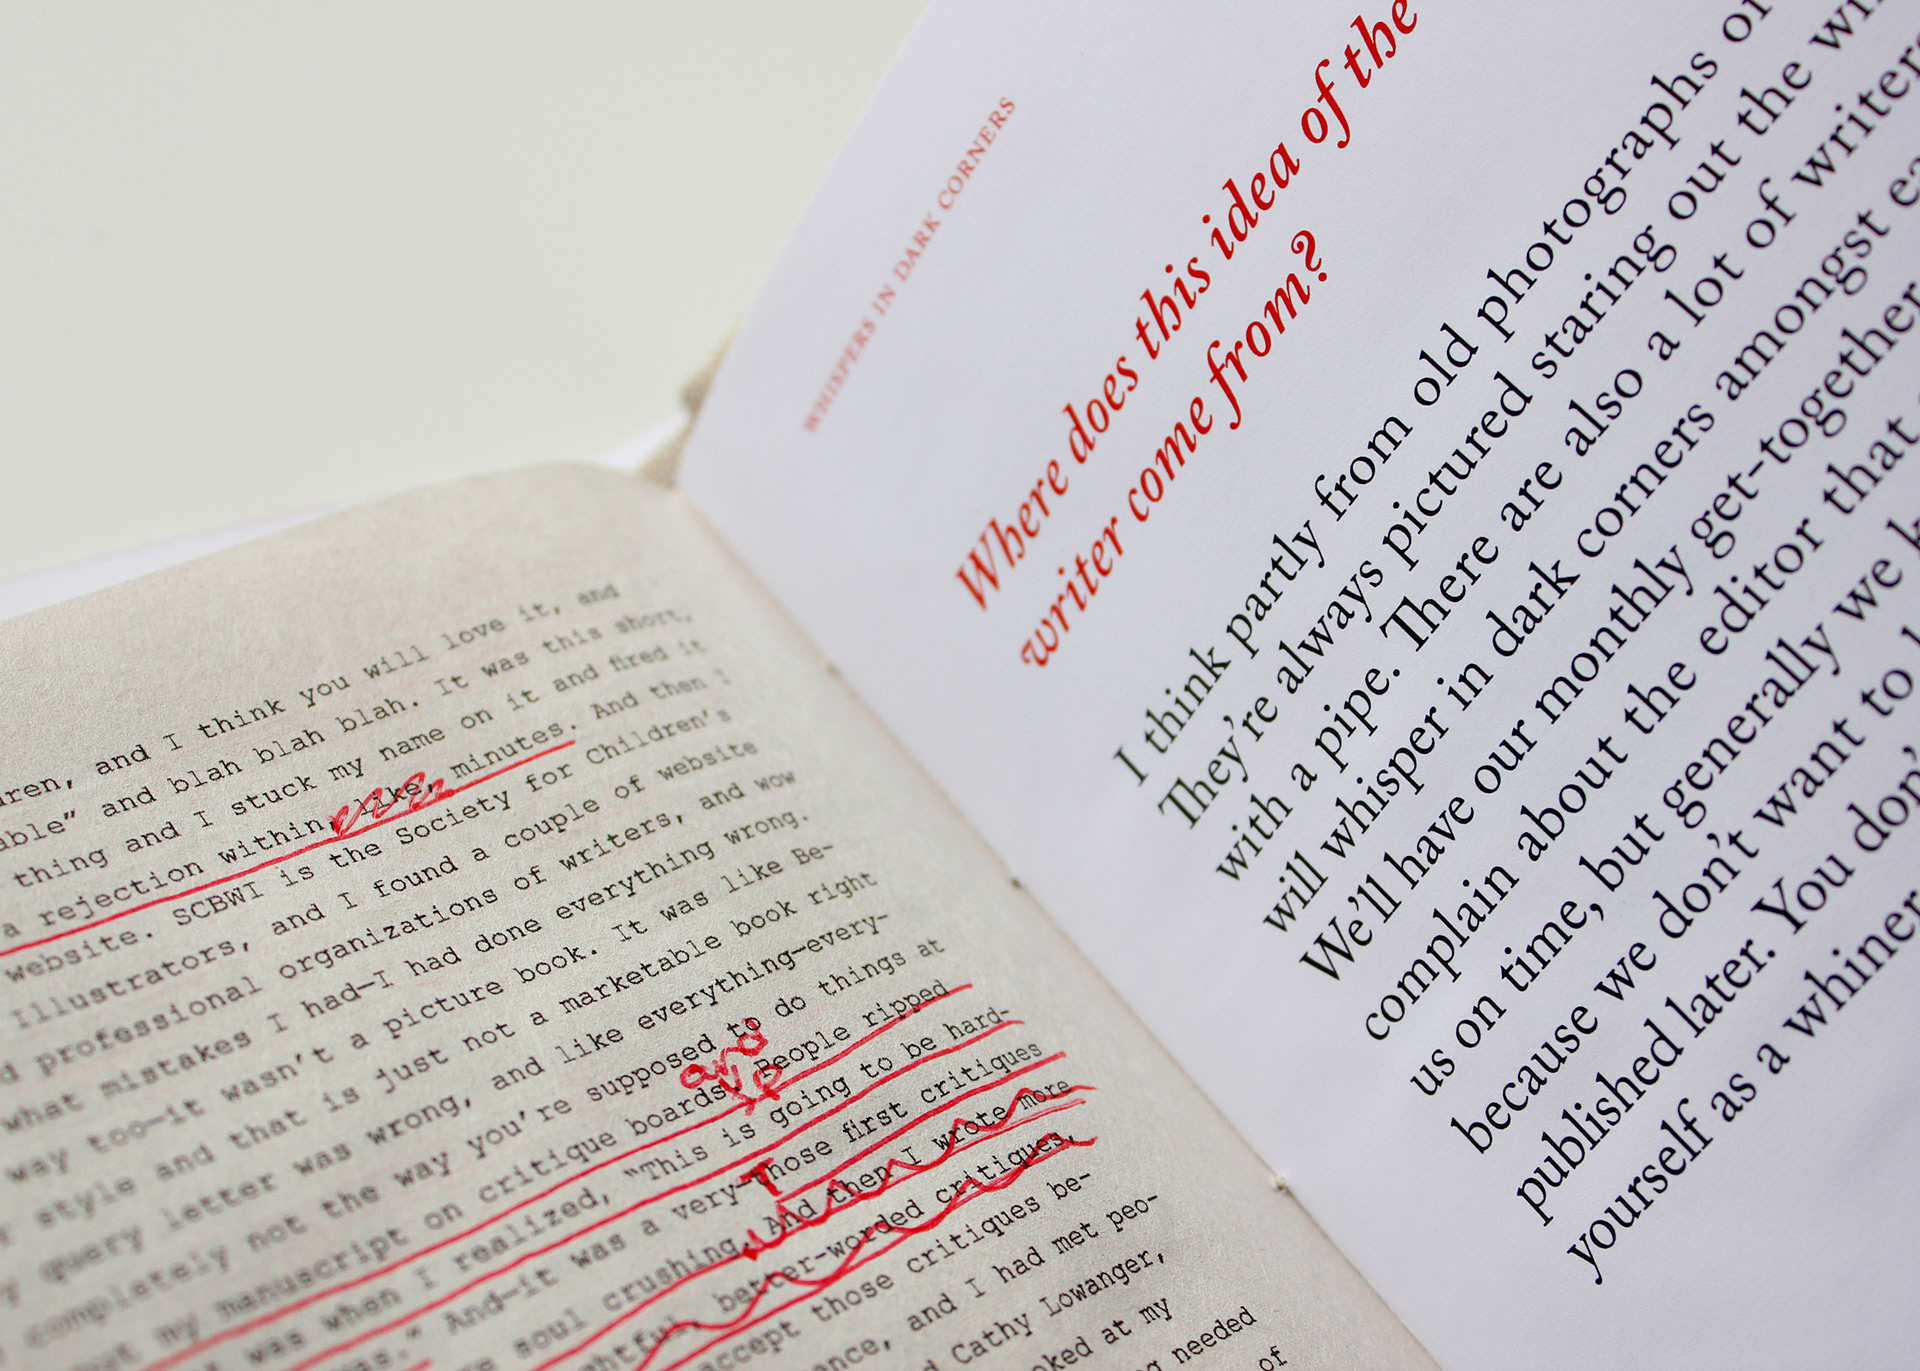 ren, and I think you will love it, and
able” and blah blah blah. It was this short,
thing and I stuck my name on it and fired it
a rejection within, like, minutes. And then I
website. SCBWI is the Society for Children’s
Illustrators, and I found a couple of website
d professional organizations of writers, and wow
what mistakes I had—I had done everything wrong.
way too—it wasn’t a picture book. It was like Be-
r style and that is just not a marketable book right
y query letter was wrong, and like everything—every-
completely not the way you’re supposed to do things at
and
out my manuscript on critique boards. People ripped
up
was when I realized, “This is going to be hard-
was.” And—it was a very—those first critiques
T
soul crushing. And then I wrote more
htful, better-worded critiques,
accept those critiques be-
ance, and I had met peo-
d Cathy Lowanger,
oked at my
ng needed
of
WHISPERS IN DARK CORNERS
Where does this idea of the
writer come from?
I think partly from old photographs of
They’re always pictured staring out the wi
with a pipe. There are also a lot of writers
will whisper in dark corners amongst ea
We’ll have our monthly get-together
complain about the editor that
us on time, but generally we k
because we don’t want to
published later. You don’
yourself as a whiner